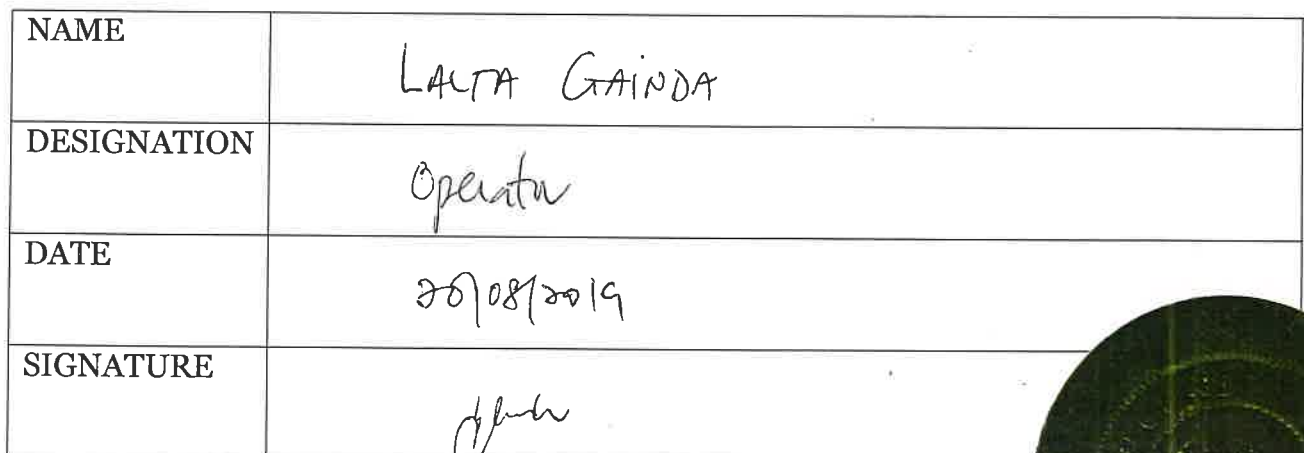 NAME
LALTA GAINDA
DESIGNATION
Operator
DATE
20/08/2019
SIGNATURE